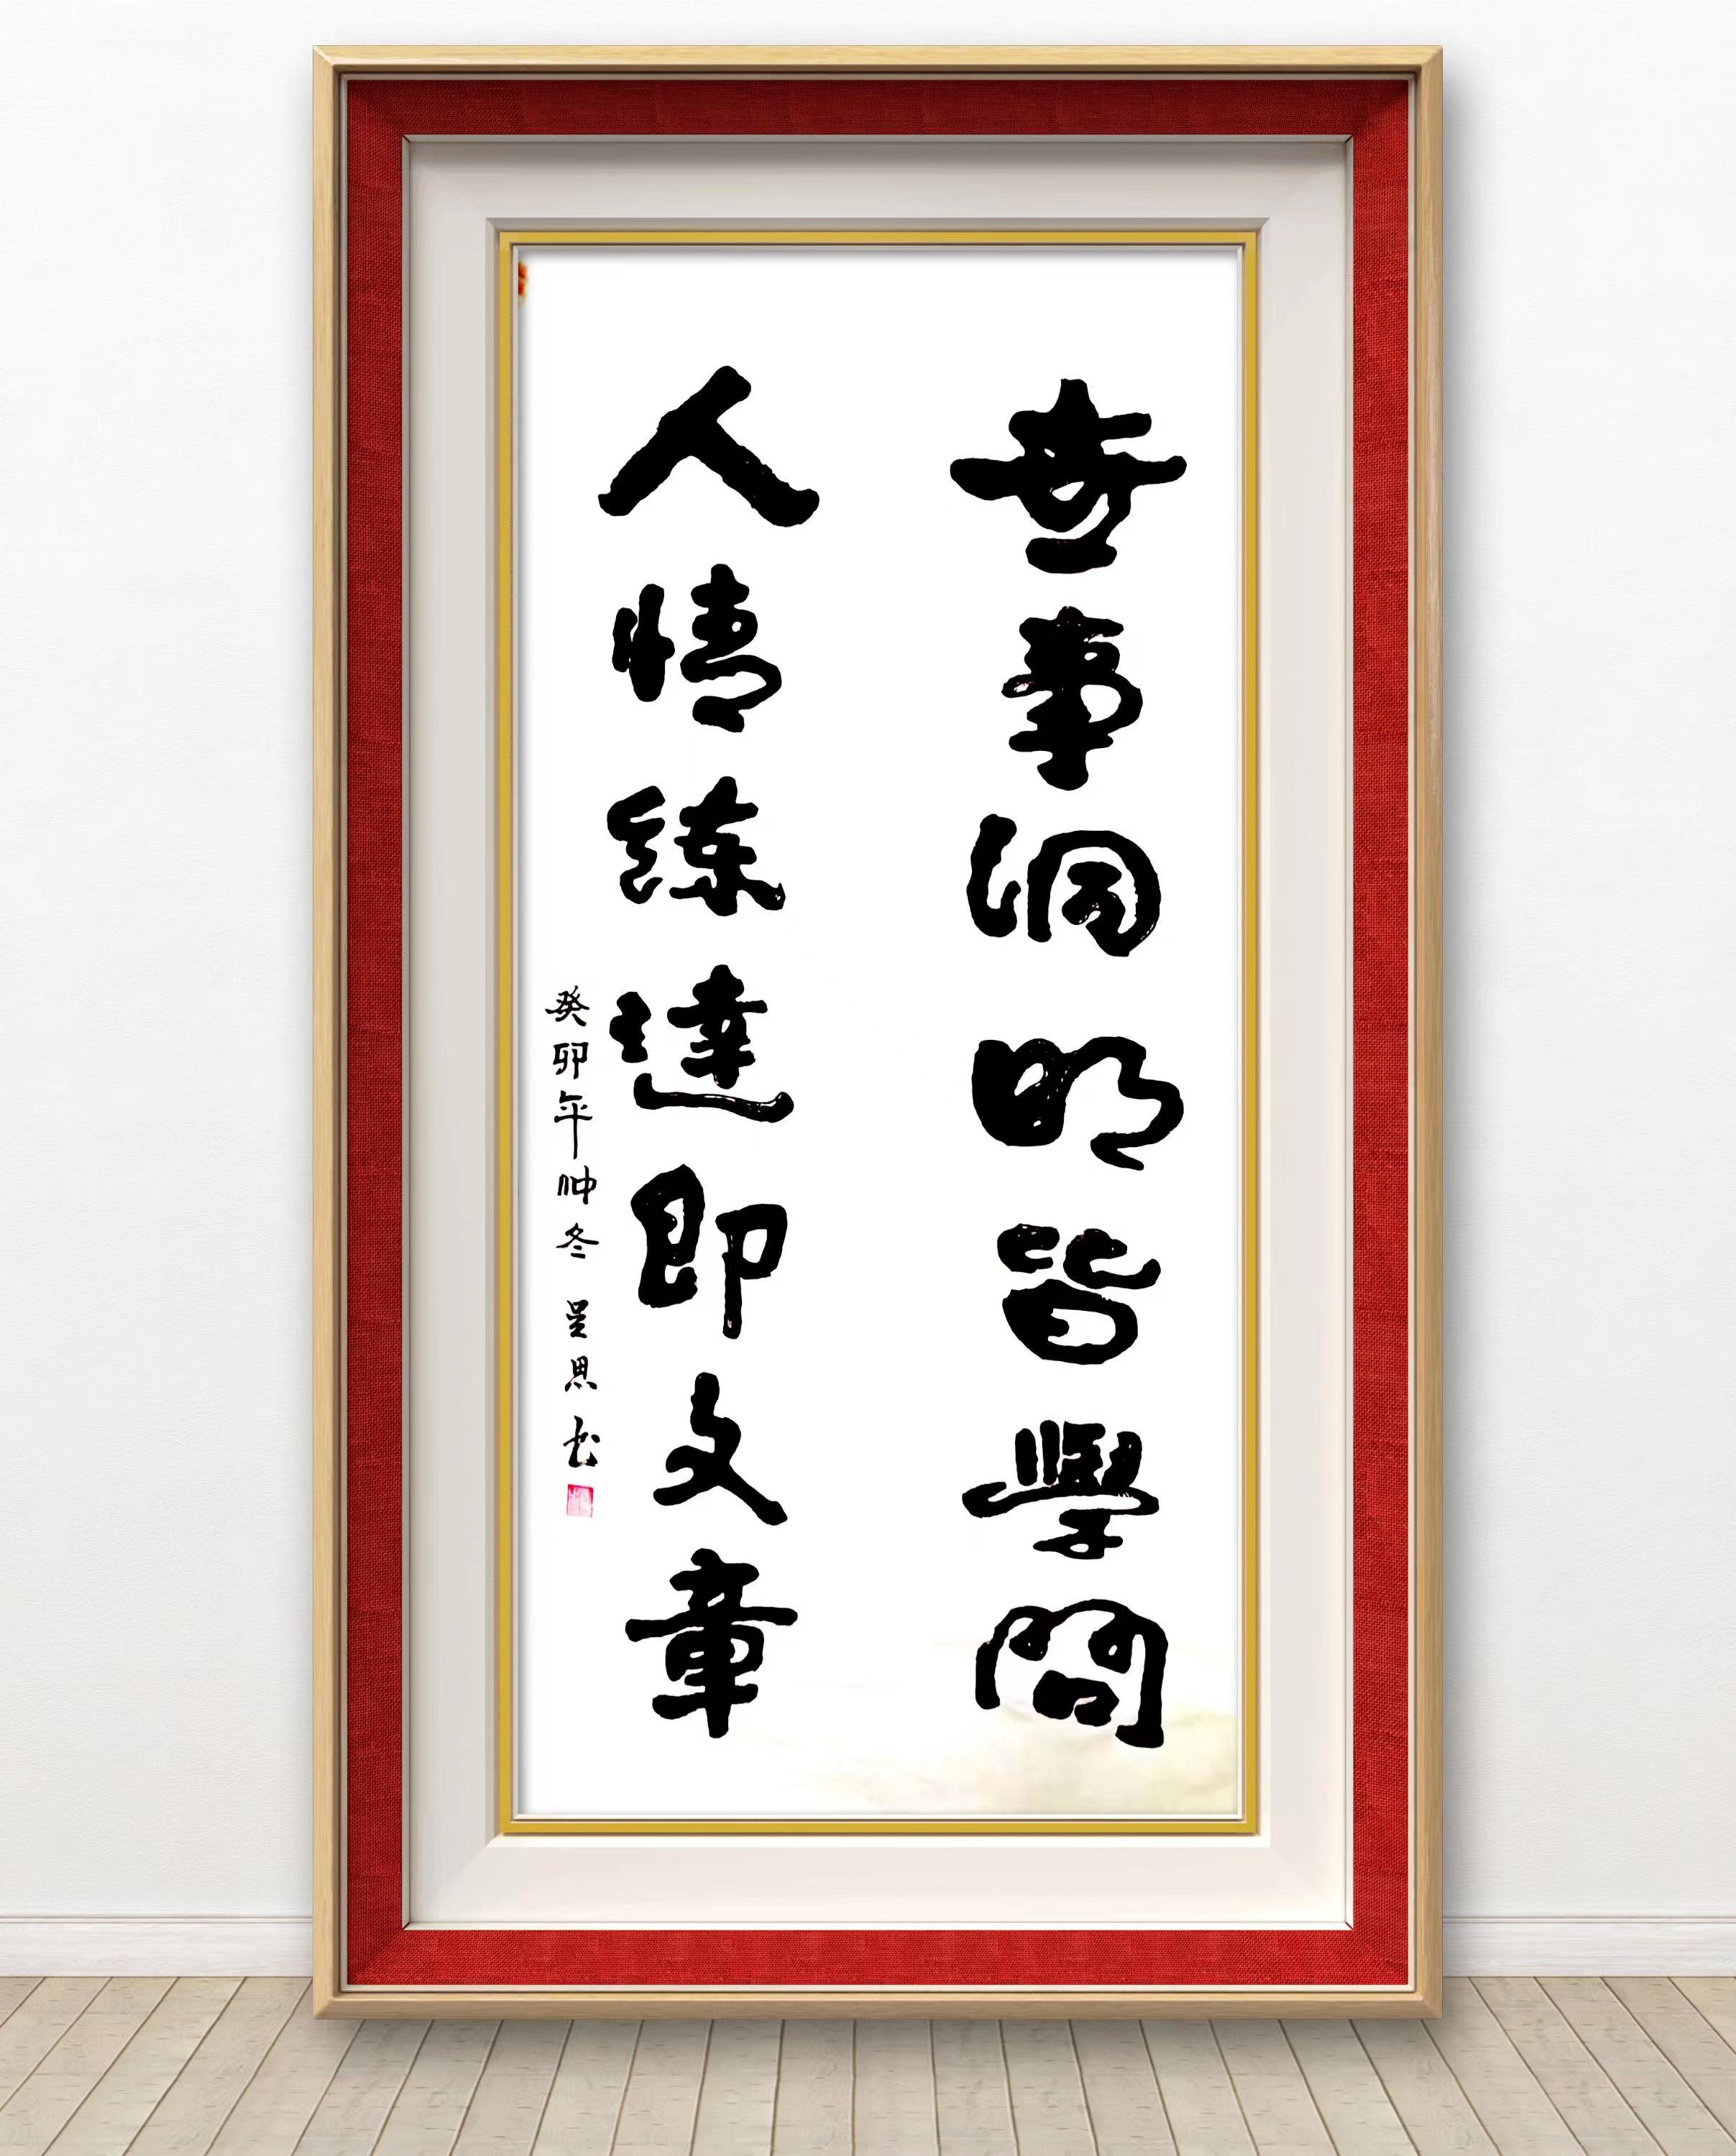 世事洞明皆學問
人情練達即文章
癸卯年仲冬 呈思书